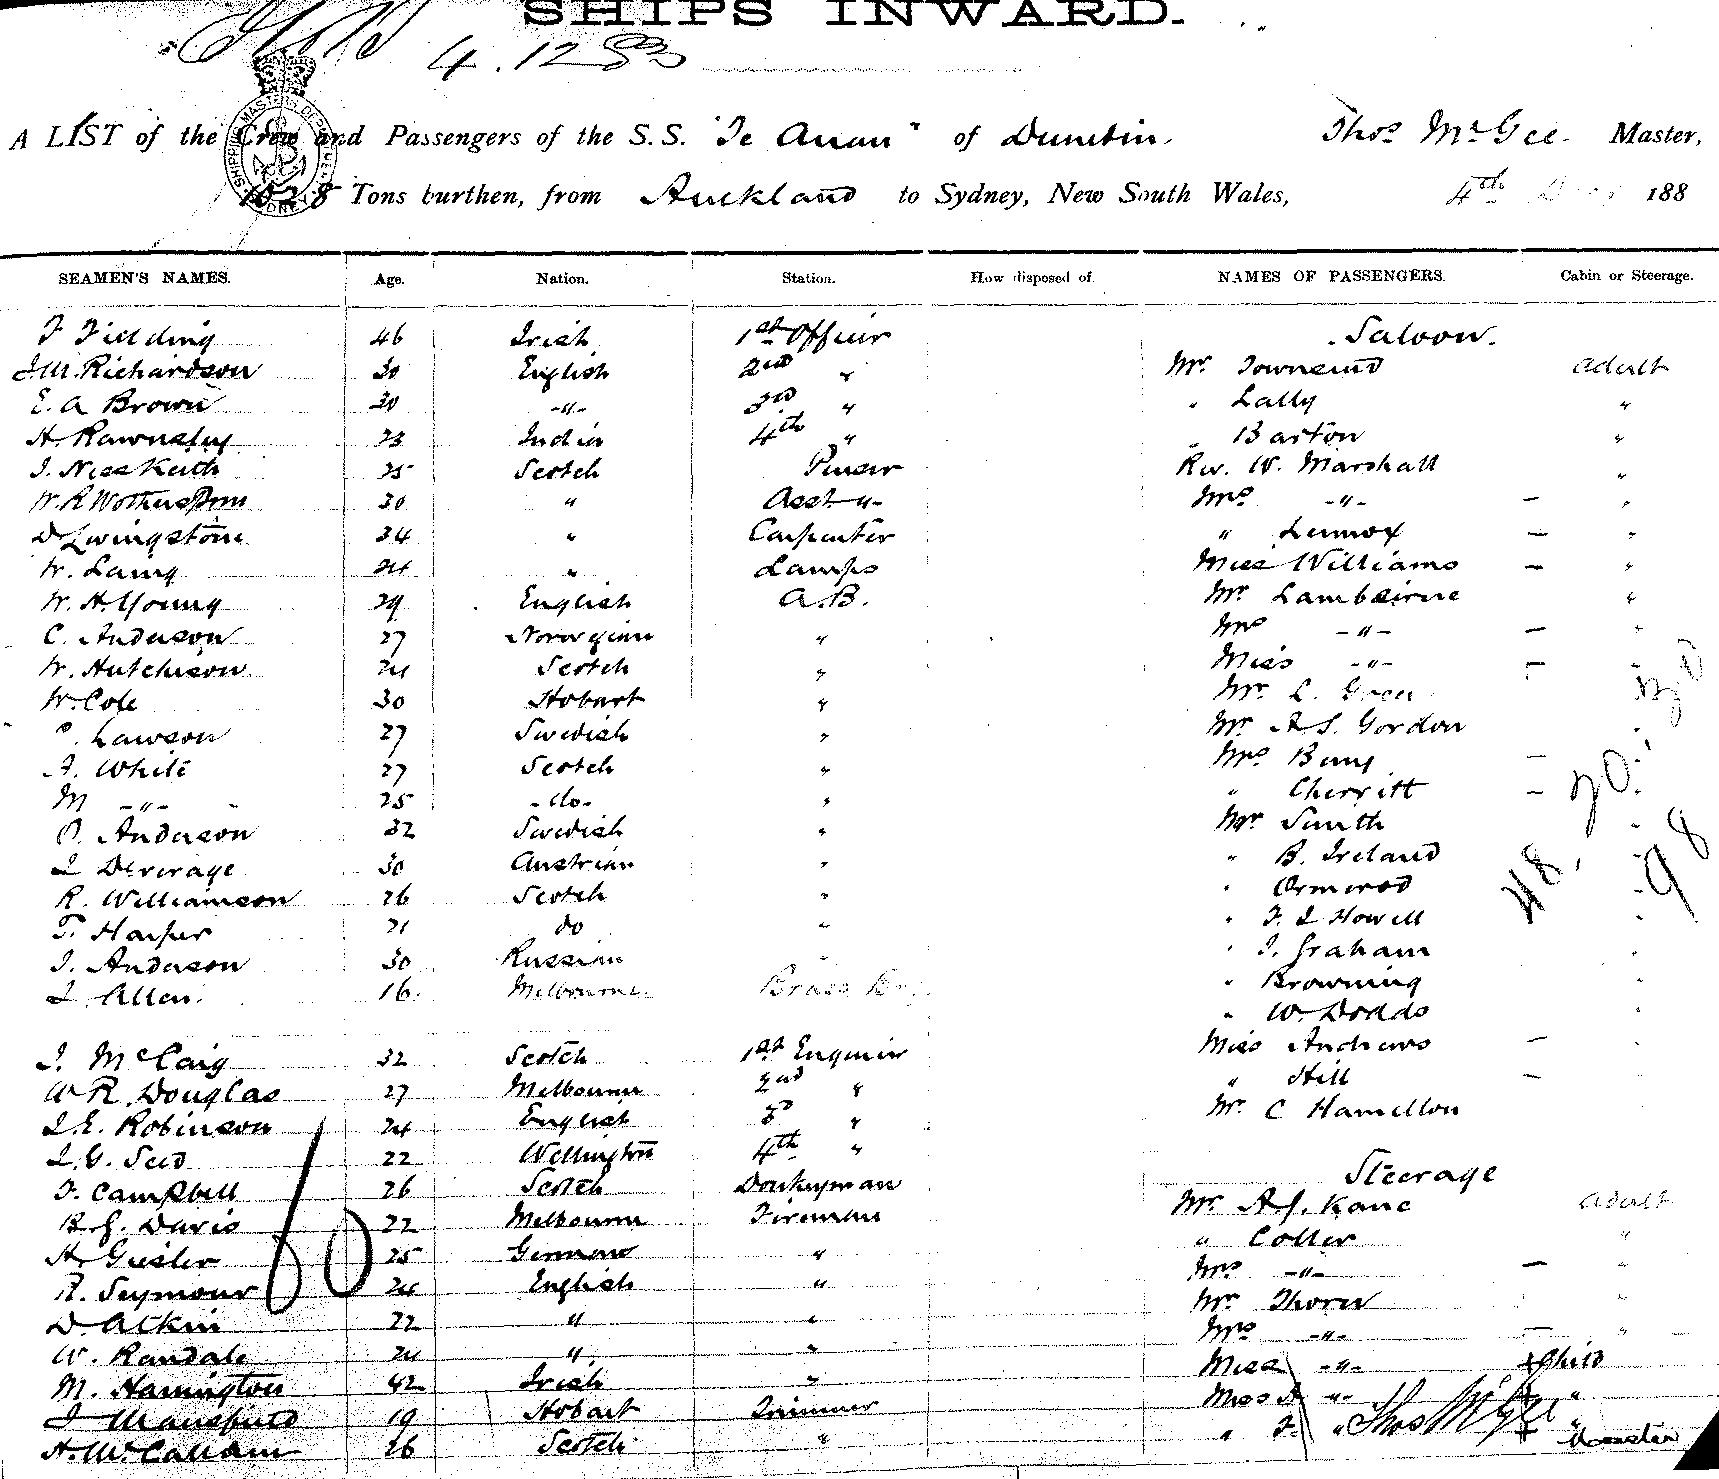 SHIPS INWARD.
4.12 83
A LIST of the Crew and Passengers of the S.S. "Te Anau" of Dunedin. Thos McGee. Master,
1028 Tons burthen, from Auckland to Sydney, New South Wales, 4th Dec 188
SEAMEN'S NAMES. Age. Nation. Station. How disposed of. NAMES OF PASSENGERS. Cabin or Steerage.
F Fielding 46 Irish 1st Officer Saloon.
J.M. Richardson 30 English 2nd " Mr. Townsend adult
E. A Brown 30 -"- 3rd " " Lally "
H. Rawnsley 23 India 4th " " Barton "
J. Niss Keith 25 Scotch Purser Rev. W. Marshall "
W. R Wotherspoon 30 " Asst -"- Mrs -"- — "
D Livingstone 34 " Carpenter " Lennox — "
W. Laing 24 " Lamps Miss Williams — "
W. H. Young 29 English A.B. Mr Lambeirne "
C. Anderson 27 Norwegian " Mrs -"- — "
W. Hutchison 24 Scotch " Miss -"- — "
W. Cole 30 Hobart " Mr. L. Green
Lawson 27 Swedish " Mr A S. Gordon
A. White 27 Scotch " Mrs —
M -"- 25 -do- " " Cherritt —
P. Anderson 32 Swedish " Mr Smith
30 Austrian " " B. Ireland
R. Williamson 26 Scotch " " Ormerod
T. Harper 21 do " " F. J Howell
J. Anderson 30 Russian " " J. Graham
J. Allen. 16. Melbourne Brass " Browning
" W. Dodds
J. McCaig 32 Scotch 1st Engineer Miss Andrews —
W R. Douglas 27 Melbourne 2nd " " Hill —
J. E. Robinson 24 English 3d " Mr. C Hamilton
J. G. Seed 22 Wellington 4th "
F. Campbell 26 Scotch Donkeyman Steerage
Davis 22 Melbourne Fireman Mr A. J. Kane adult
H. Giesler 25 German " " Coller "
R. Seymour 24 English " Mrs -"- — "
D. Atkin 22 " " Mr. Thorn "
W. Randale 24 " " Mrs -"- — "
M. Harrington 42 Irish " Miss -"- Child
J Mansfield 19 Hobart Trimmer Miss D -"- "
H. McCallam 26 Scotch " " F. " Thos McGee "
Master
48. 50.
98